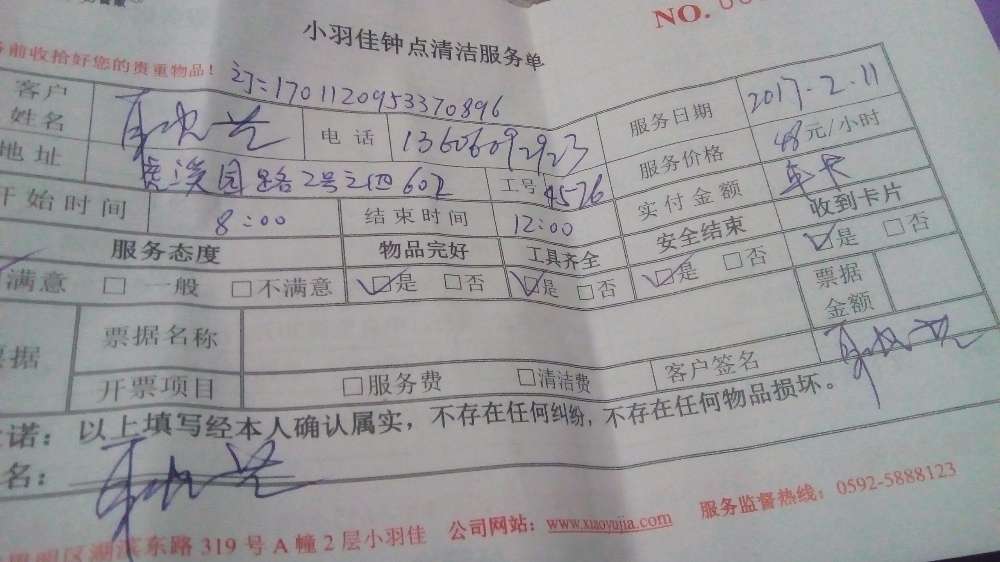 小羽佳钟点清洁服务单 NO. 00
前收拾好您的贵重物品！ 订：1701120953370896
客户姓名 电话 13606092923 服务日期 2017.2.11
地址 园路2号之四602 工号 4576 服务价格 48元/小时
开始时间 8:00 结束时间 12:00 实付金额 年卡
服务态度 物品完好 工具齐全 安全结束 收到卡片
满意 □ 一般 □不满意 ☑是 □否 ☑是 □否 ☑是 □否 ☑是 □否
票据 票据名称 票据金额
开票项目 □服务费 □清洁费 客户签名
诺：以上填写经本人确认属实，不存在任何纠纷,不存在任何物品损坏。
名：
区湖滨东路 319 号 A 幢 2 层小羽佳 公司网站：www.xiaoyujia.com 服务监督热线：0592-5888123